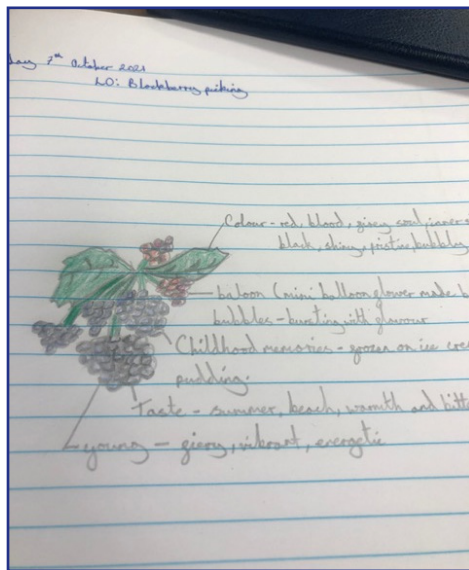 day 7th October 2021
LO: Blackberry picking
Colour - red, blood, firey soul, inner
black, shiny, pristine, bubbles
baloon (mini balloon flower made b
bubbles - bursting with flavour
Childhood memories - frozen on ice cre
pudding.
Taste - summer, beach, warmth and bitt
young - fiery, vibrant, energetic